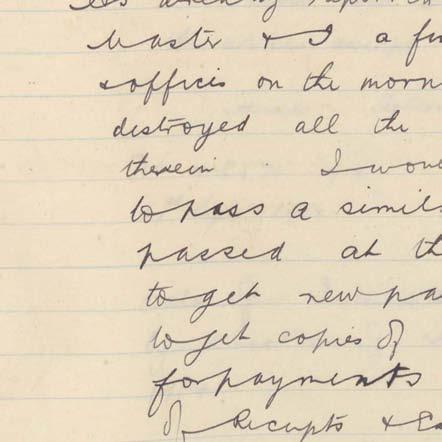 As already reported
Master & I a fu
& offices on the morn
destroyed all the
therein I wou
to pass a simil
passed at th
to get new pa
to get copies of
for payments
of Receipts & Ex